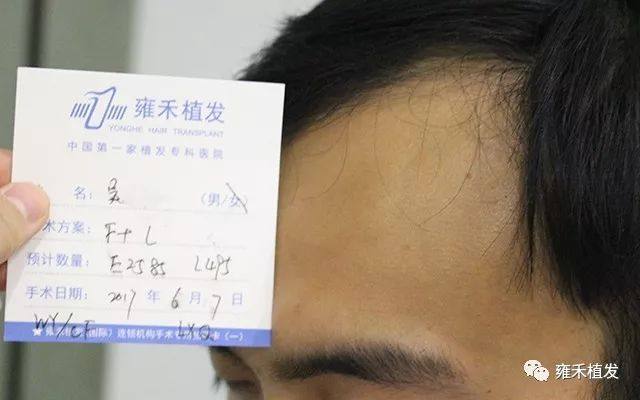 雍禾植发
YONGHE HAIR TRANSPLANT
中国第一家植发专科医院
名： 吴 （男/女）
术方案： F+L
预计数量： E2585 L495
手术日期： 2017 年 6 月 7 日
WY/CF LYQ
国际）连锁机构手术 卡（一）
雍禾植发